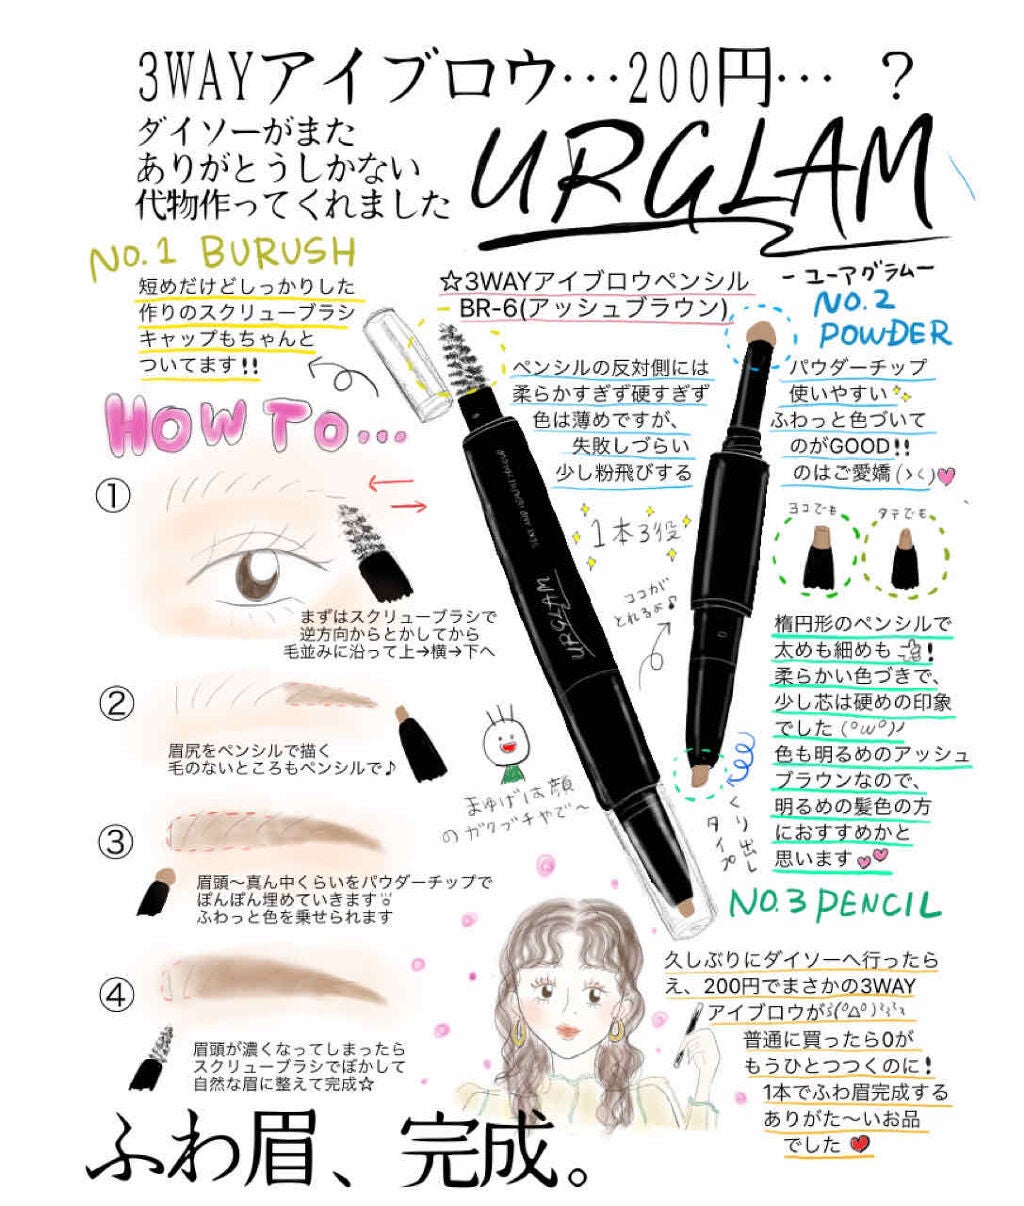 3WAYアイブロウ…200円… ？
ダイソーがまた
ありがとうしかない
代物作ってくれました
URGLAM
－ユーアグラム－
NO.1 BURUSH
短めだけどしっかりした
作りのスクリューブラシ
キャップもちゃんと
ついてます!!
☆3WAYアイブロウペンシル
BR-6(アッシュブラウン)
NO.2
POWDER
ペンシルの反対側には
柔らかすぎず硬すぎず
色は薄めですが、
失敗しづらい
少し粉飛びする
パウダーチップ
使いやすい✨
ふわっと色づいて
のがGOOD!!
のはご愛嬌(>く)💕
HOW TO...
①
まずはスクリューブラシで
逆方向からとかしてから
毛並みに沿って上→横→下へ
②
眉尻をペンシルで描く
毛のないところもペンシルで♪
③
眉頭〜真ん中くらいをパウダーチップで
ぽんぽん埋めていきます
ふわっと色を乗せられます
④
眉頭が濃くなってしまったら
スクリューブラシでぼかして
自然な眉に整えて完成☆
1本3役
ココが
とれるよ♪
URGLAM
まゆげは顔
のガクブチやで〜
ヨコでも
タテでも
楕円形のペンシルで
太めも細めも👍!
柔らかい色づきで、
少し芯は硬めの印象
でした(°ω°)ノ
色も明るめのアッシュ
ブラウンなので、
明るめの髪色の方
におすすめかと
思います💕
くり出し
タイプ
NO.3 PENCIL
久しぶりにダイソーへ行ったら
え、200円でまさかの3WAY
アイブロウが
普通に買ったら0が
もうひとつつくのに!
1本でふわ眉完成する
ありがた〜いお品
でした❤
ふわ眉、完成。